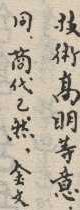 技術高明等意
同．商代已然 金文